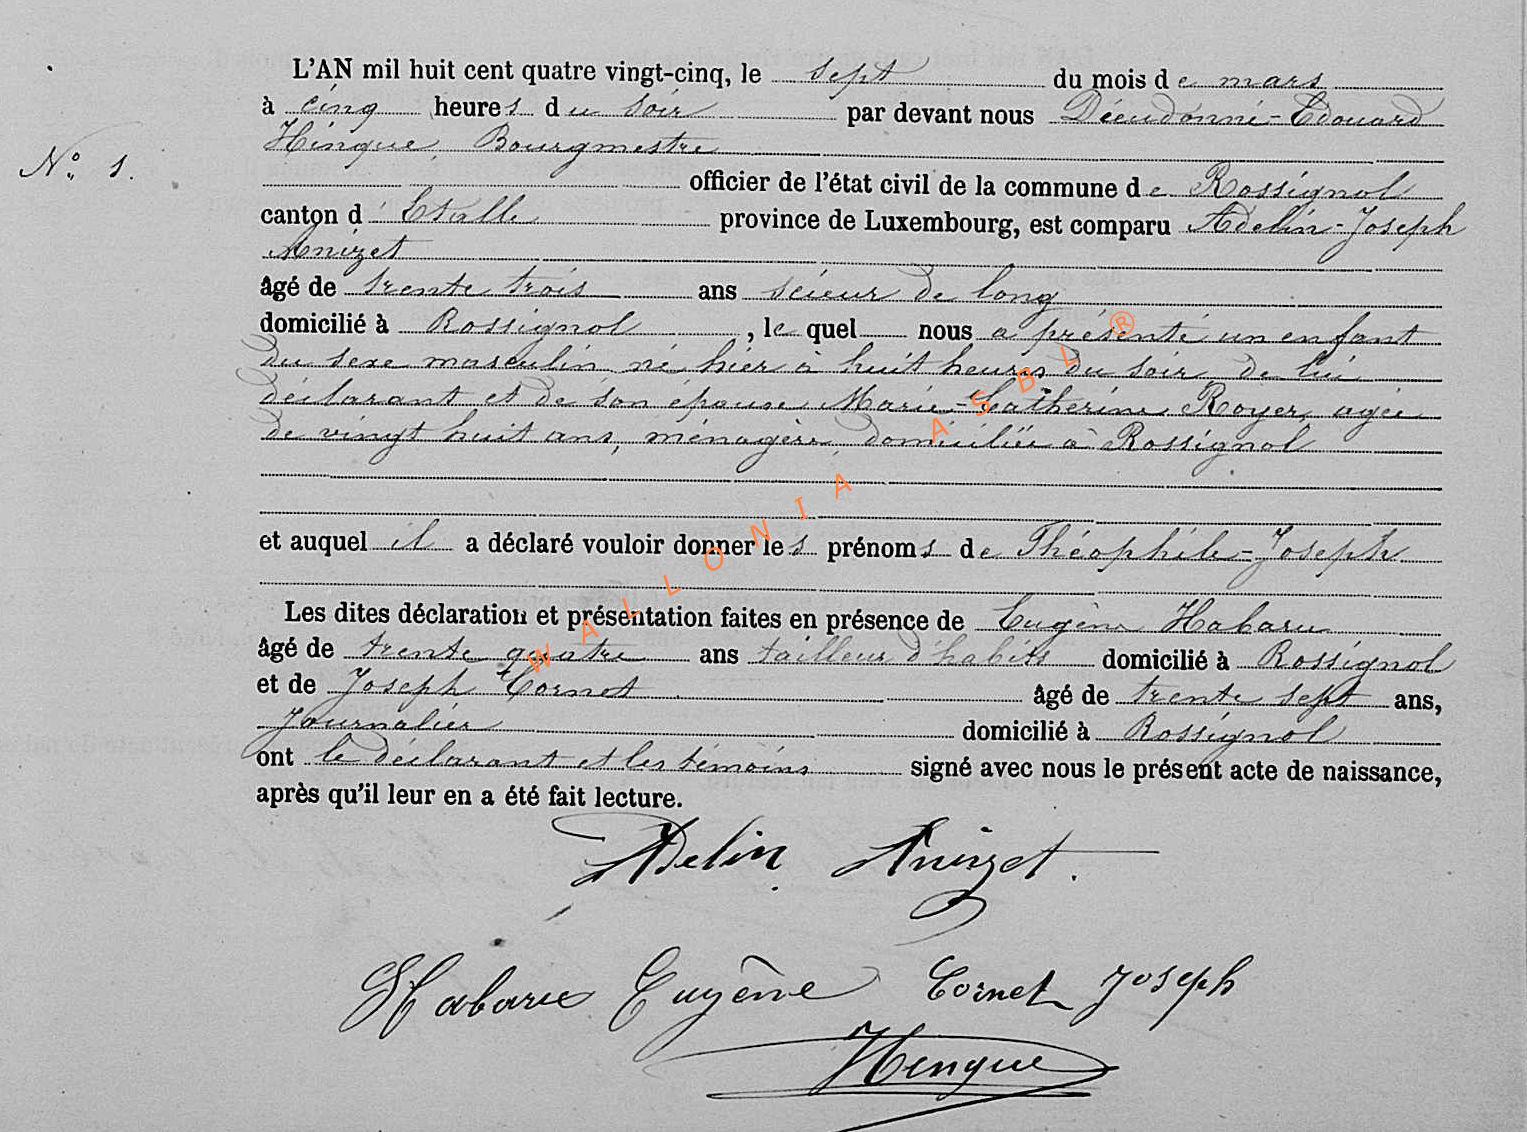 L'AN mil huit cent quatre vingt-cinq, le sept du mois de mars
à cinq heures du soir par devant nous Dieudonné-Edouard
Hinque, Bourgmestre
N° 1.
officier de l'état civil de la commune de Rossignol
canton d'Etalle province de Luxembourg, est comparu Adelin-Joseph
Anizet
âgé de trente trois ans scieur de long
domicilié à Rossignol, lequel nous a présenté un enfant
du sexe masculin né hier à huit heures du soir de lui
déclarant et de son épouse Marie-Catherine Royer, agée
de vingt huit ans, ménagère, domiciliée à Rossignol
et auquel il a déclaré vouloir donner les prénoms de Théophile-Joseph
Les dites déclaration et présentation faites en présence de Eugène Habaru
âgé de trente quatre ans tailleur d'habits domicilié à Rossignol
et de Joseph Cornet âgé de trente sept ans,
Journalier domicilié à Rossignol
ont le déclarant et les témoins signé avec nous le présent acte de naissance,
après qu'il leur en a été fait lecture.
Adelin Anizet.
Habaru Eugène Cornet Joseph
Hinque
WALLONIA ASBL ®